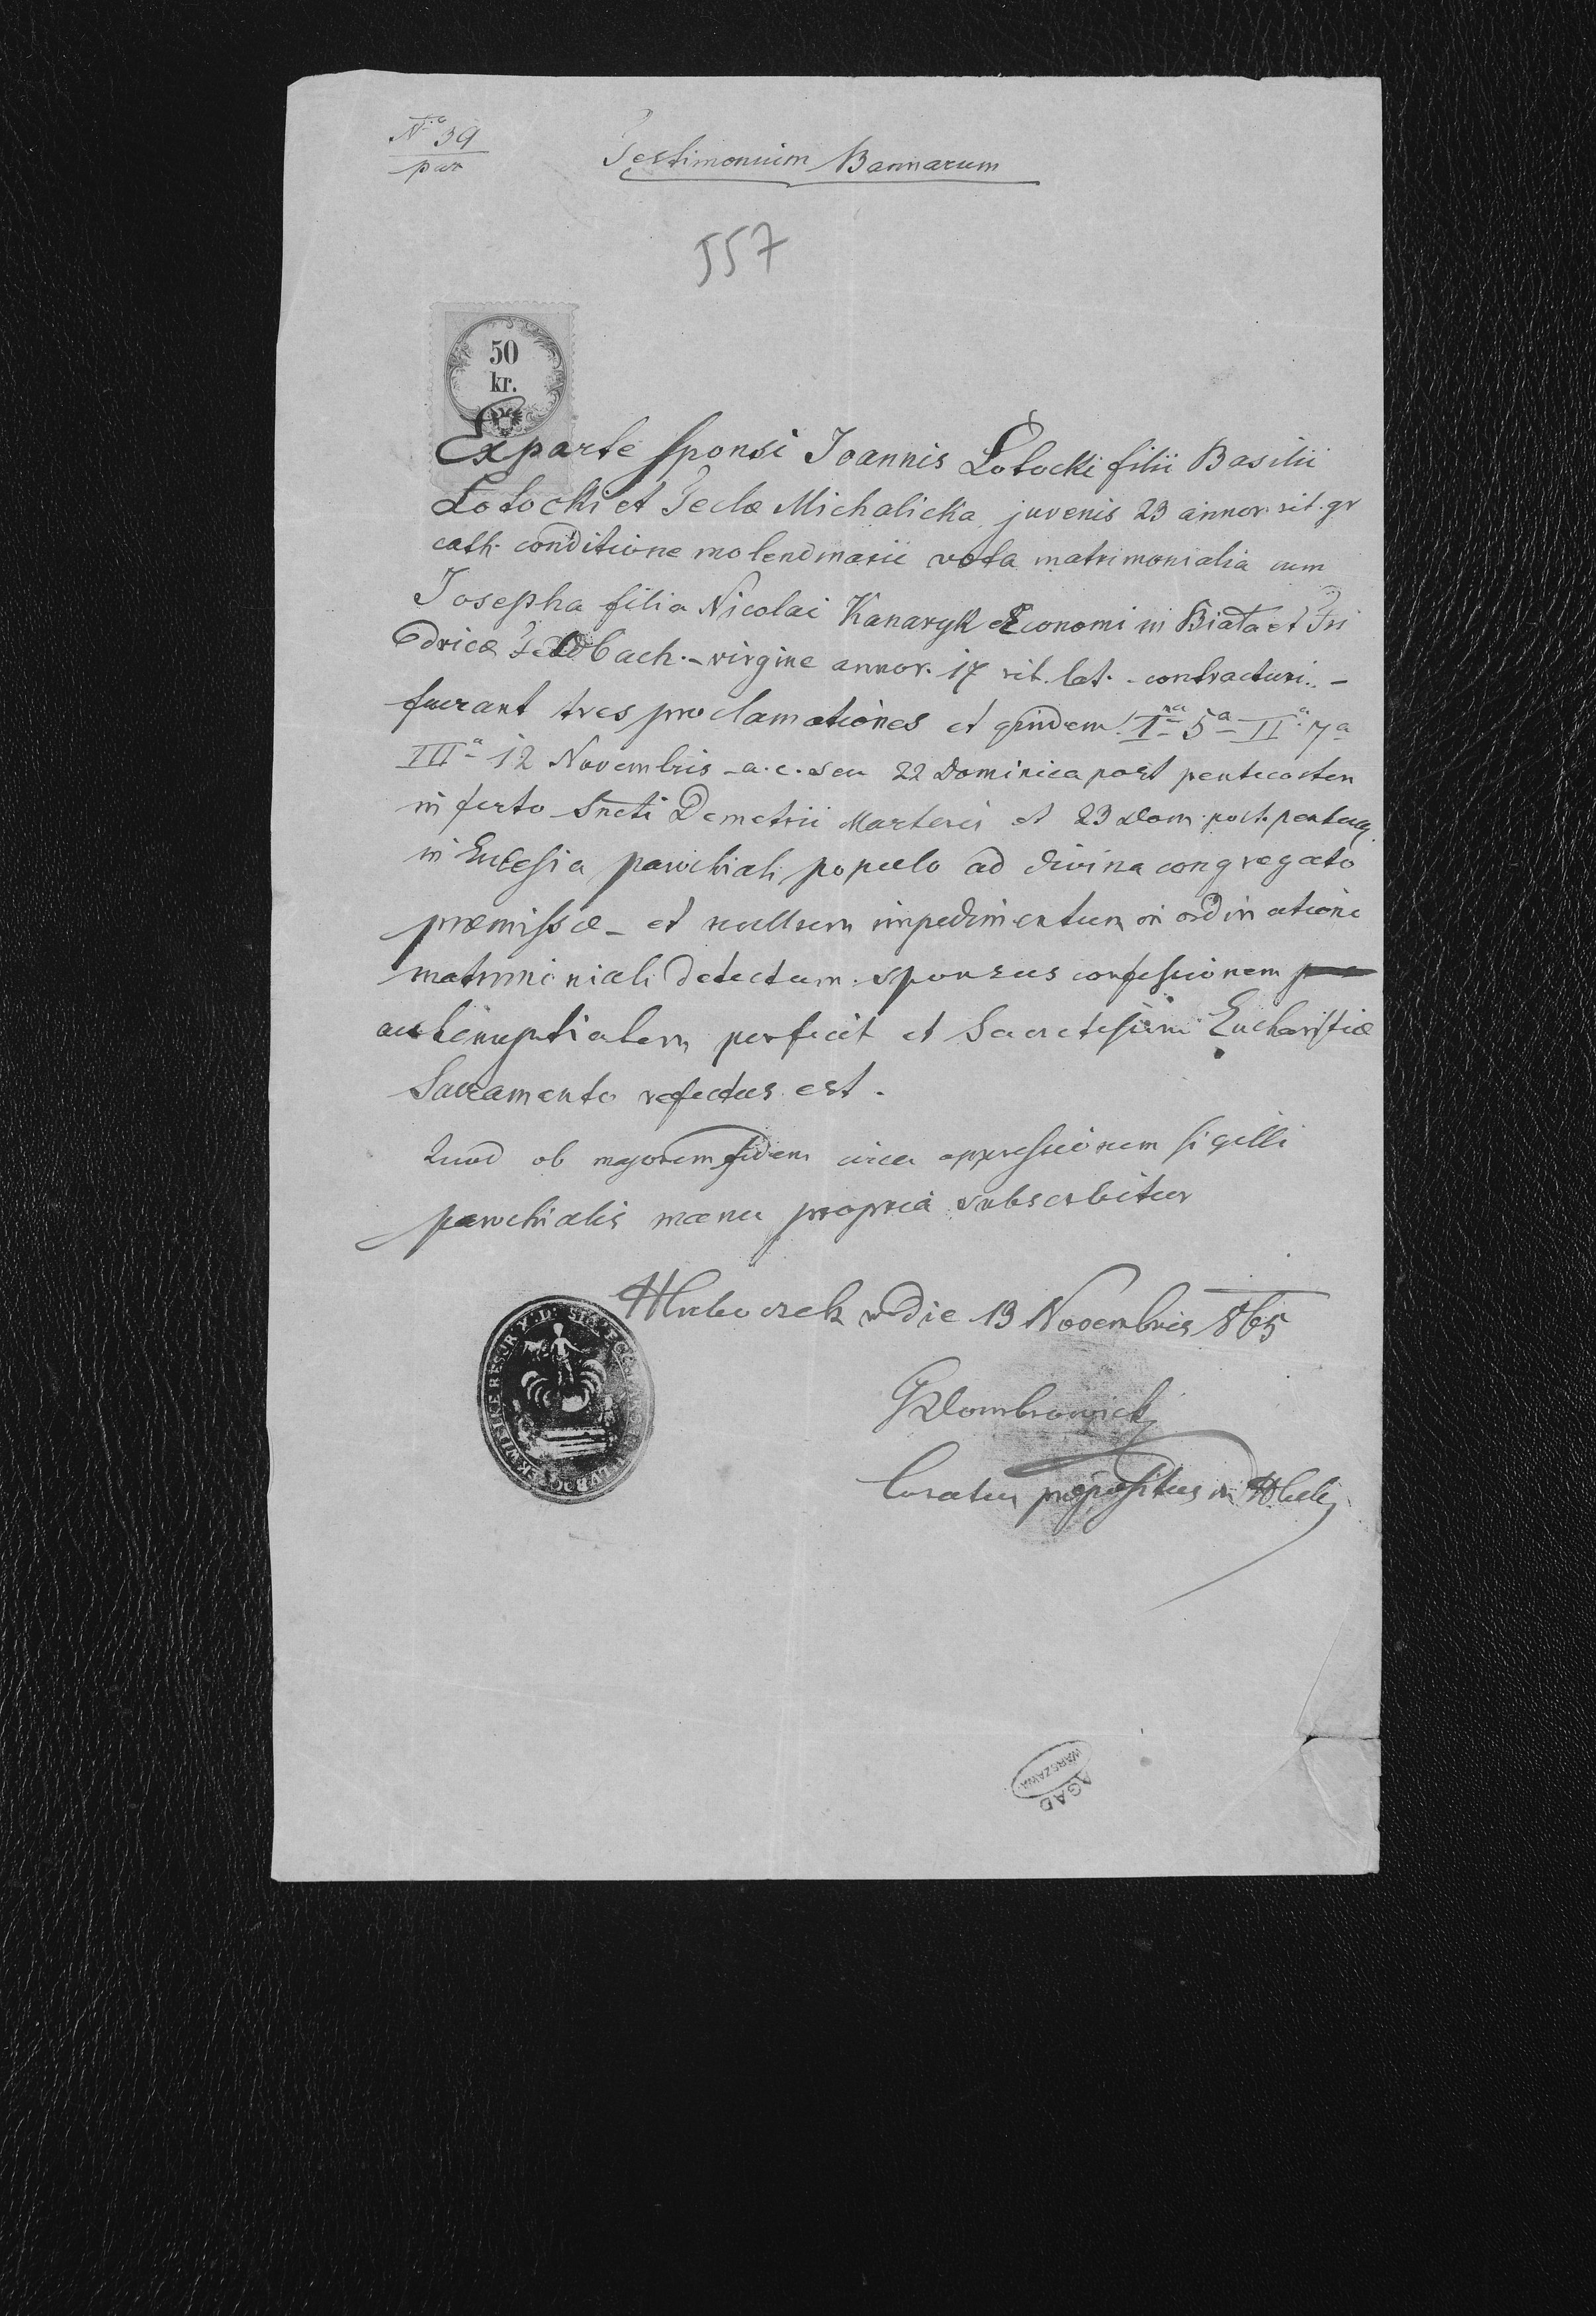 No 39
par
Testimonium Bannarum
557
50
kr.
Ex parte sponsi Joannis Łotocki filii Basilii
Łotocki et Teclæ Michalicka juvenis 23 annor. rit. gr
cath. conditione molendinarii vota matrimonialia cum
Josepha filia Nicolai Kanaryk Economi in Biała et Fri
dricæ Feldbach. - virgine annor. 17 rit. lat. - contracturi. -
fuerant tres proclamationes et quidem! Ina 5a - IIa 7a
IIIa - 12 Novembris - a. c. seu 22 Dominica post pentecosten
in festo Sncti Demetrii Marteris et 23 Dom. post. pentecos.
in Eclesia parochiali populo ad divina congregato
præmissæ - et nullum impedimentum in ordinatione
matrimoniali detectum. sponsus confessionem
antenuptialem perfecit et Sacratissimi Eucharistiæ
Sacramento refectus est.
Quod ob majorem fidem circa appressionem sigilli
parochialis manu propria subscribitur
Hluboczek w. die 13 Novembris 865
G Dombrowicki
Curatus præpositus in Hlub
AGAD
WARSZAWA